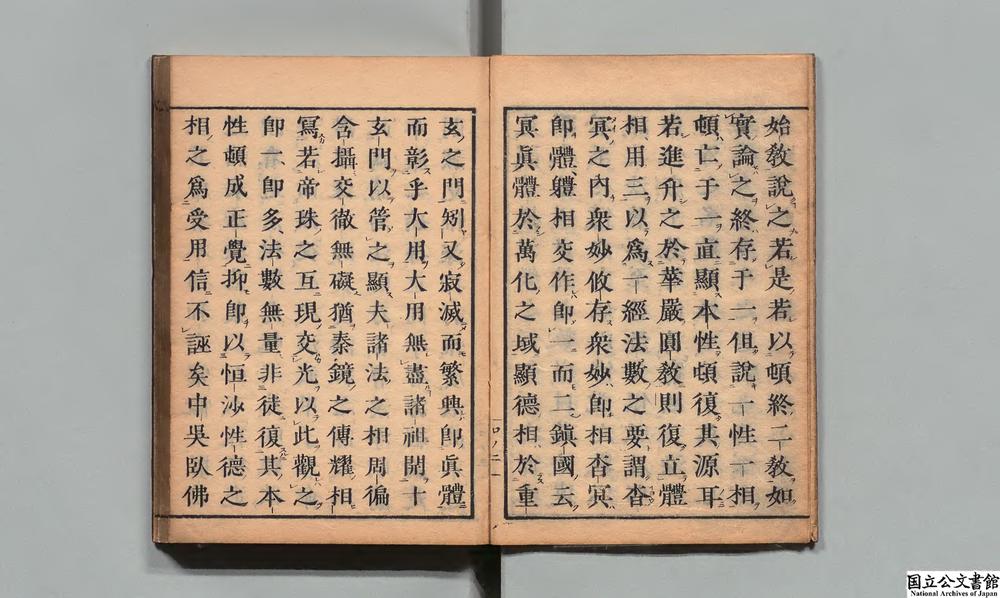 始敎說之若是若以頓終二敎如
實論之終存于二但說一性一相
頓亡于一直顯本性頓復其源耳
若進升之於華嚴圓敎則復立體
相用三以爲一經法數之要謂杳
冥之內衆妙攸存衆妙卽相杳冥
卽體體相交作卽一而二鎭國云
冥眞體於萬化之域顯德相於重
玄之門矧又寂滅而繁興卽眞體
而彰乎大用大用無盡諸祖開十
玄門以管之顯夫諸法之相周徧
含攝交徹無礙猶秦鏡之傳耀相
寫若帝珠之互現交光以此觀之
卽一卽多法數無量非徒復其本
性頓成正覺抑卽以恒沙性德之
相之爲受用信不誣矣中吳臥佛
国立公文書館
National Archives of Japan